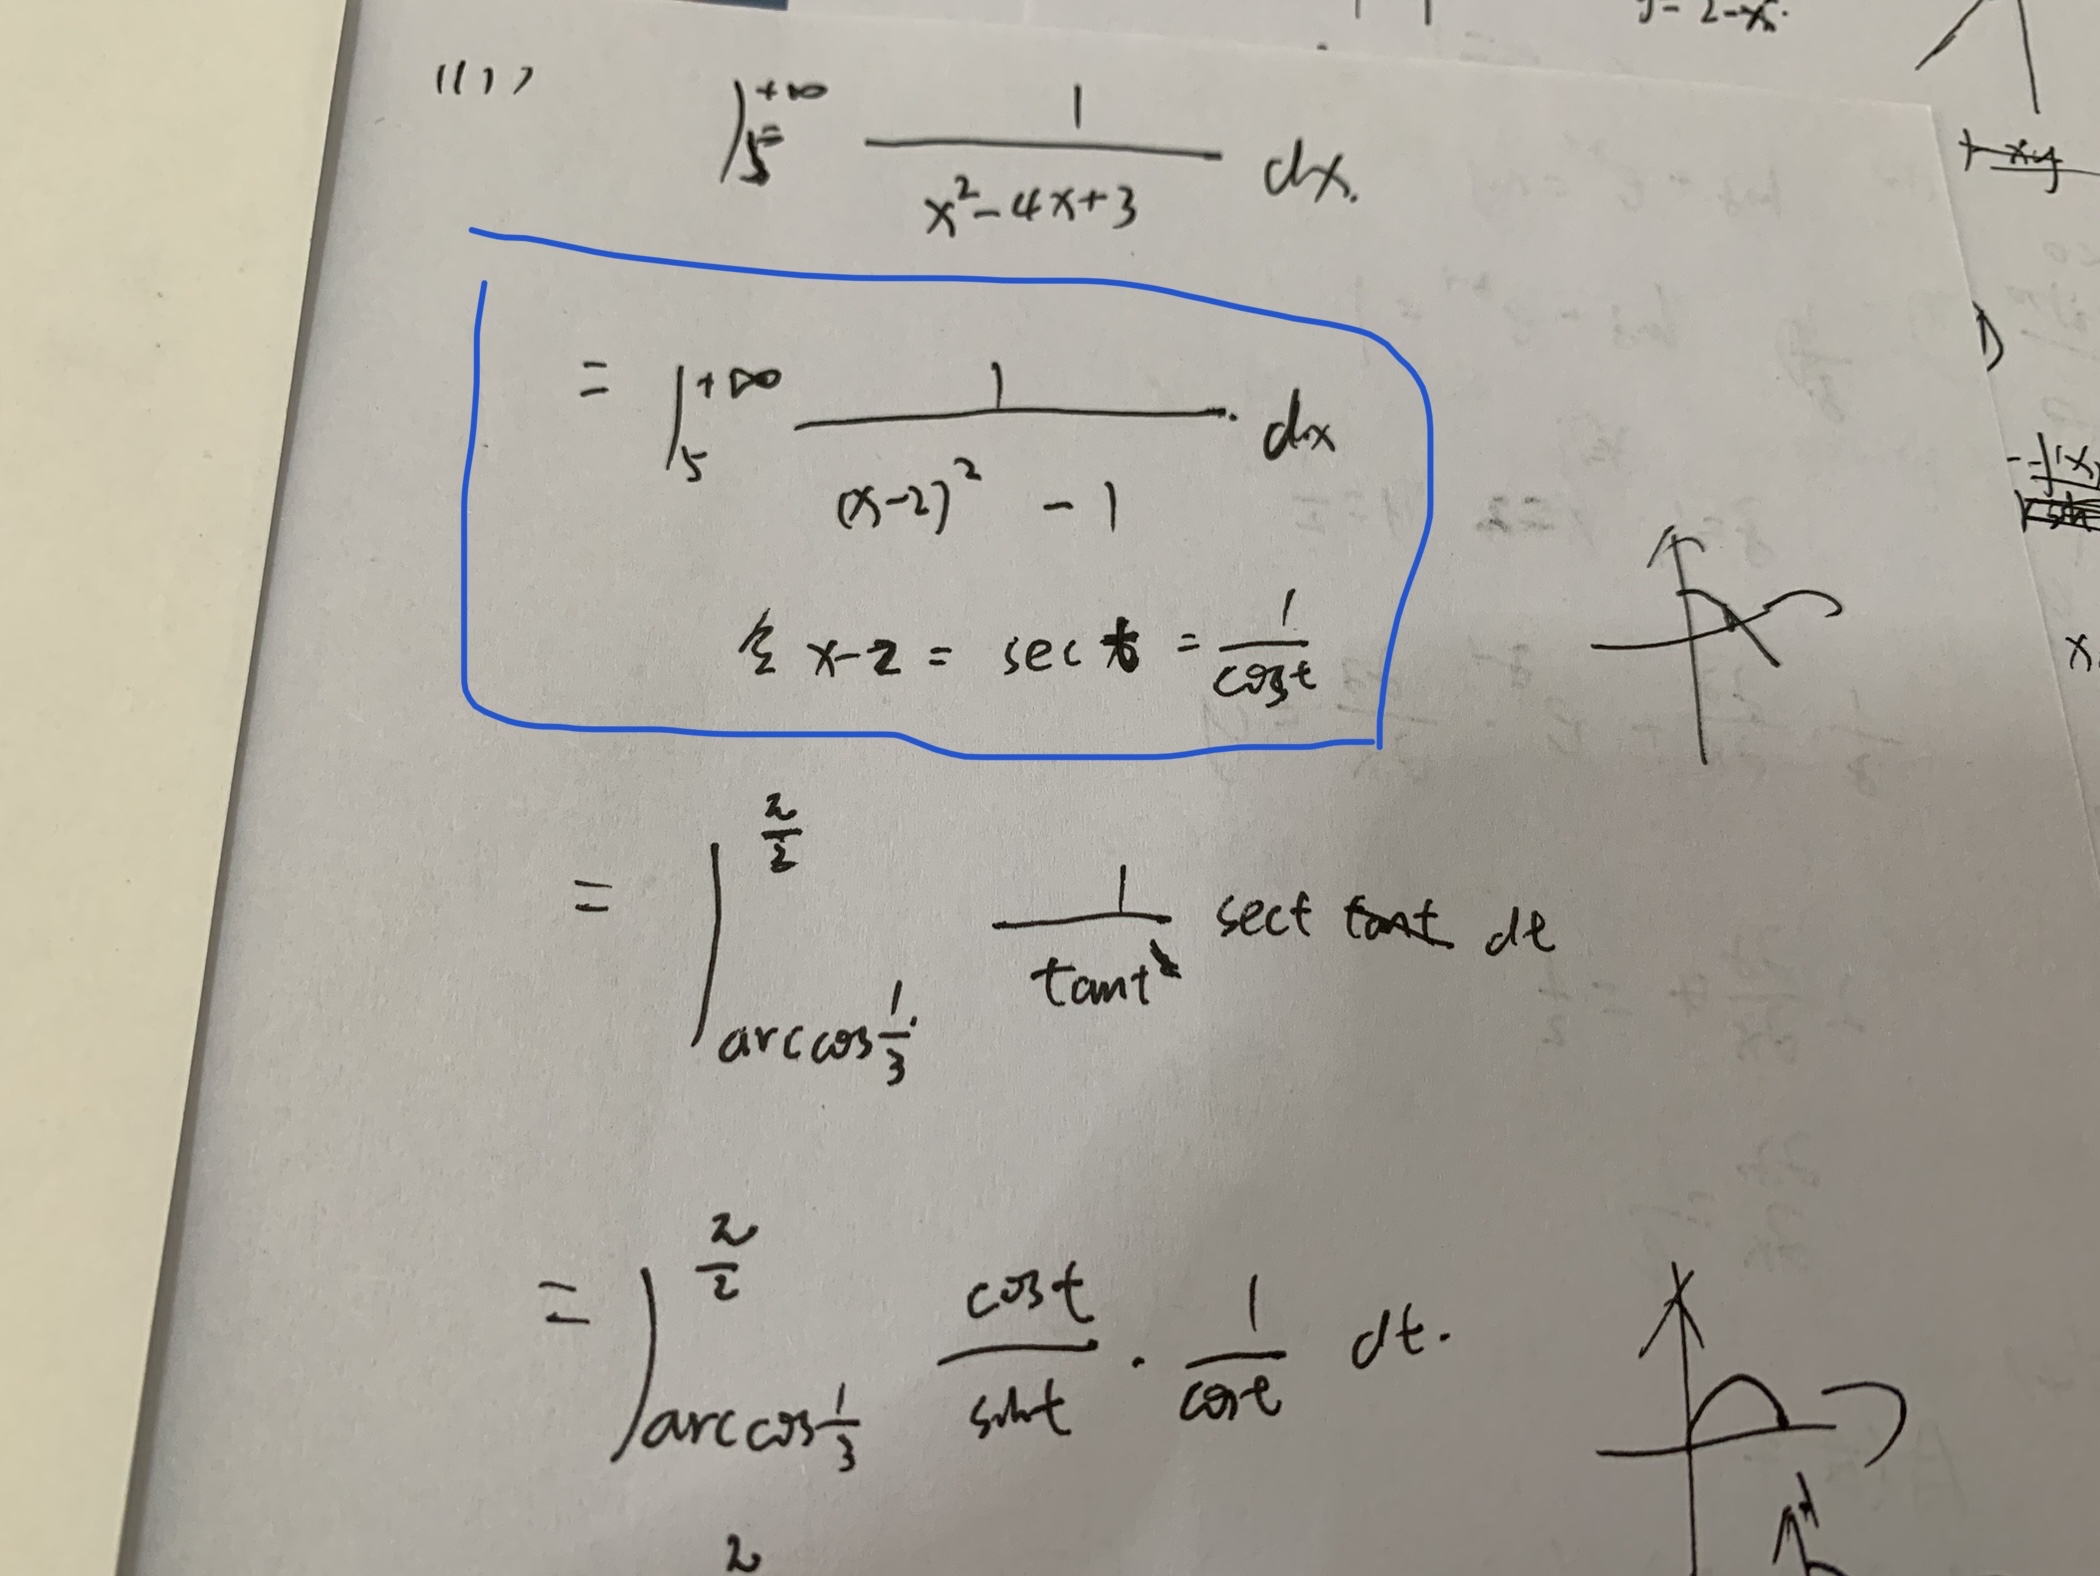 11(1) ∫₅^{+∞} 1/(x²-4x+3) dx.
= ∫₅^{+∞} 1/((x-2)² - 1) · dx
令 x-2 = sec t = 1/cost
= ∫_{arccos 1/3}^{π/2} 1/tant² sect tant dt
= ∫_{arccos 1/3}^{π/2} cost/sint · 1/cost dt.
y= 2-x.
+ xy